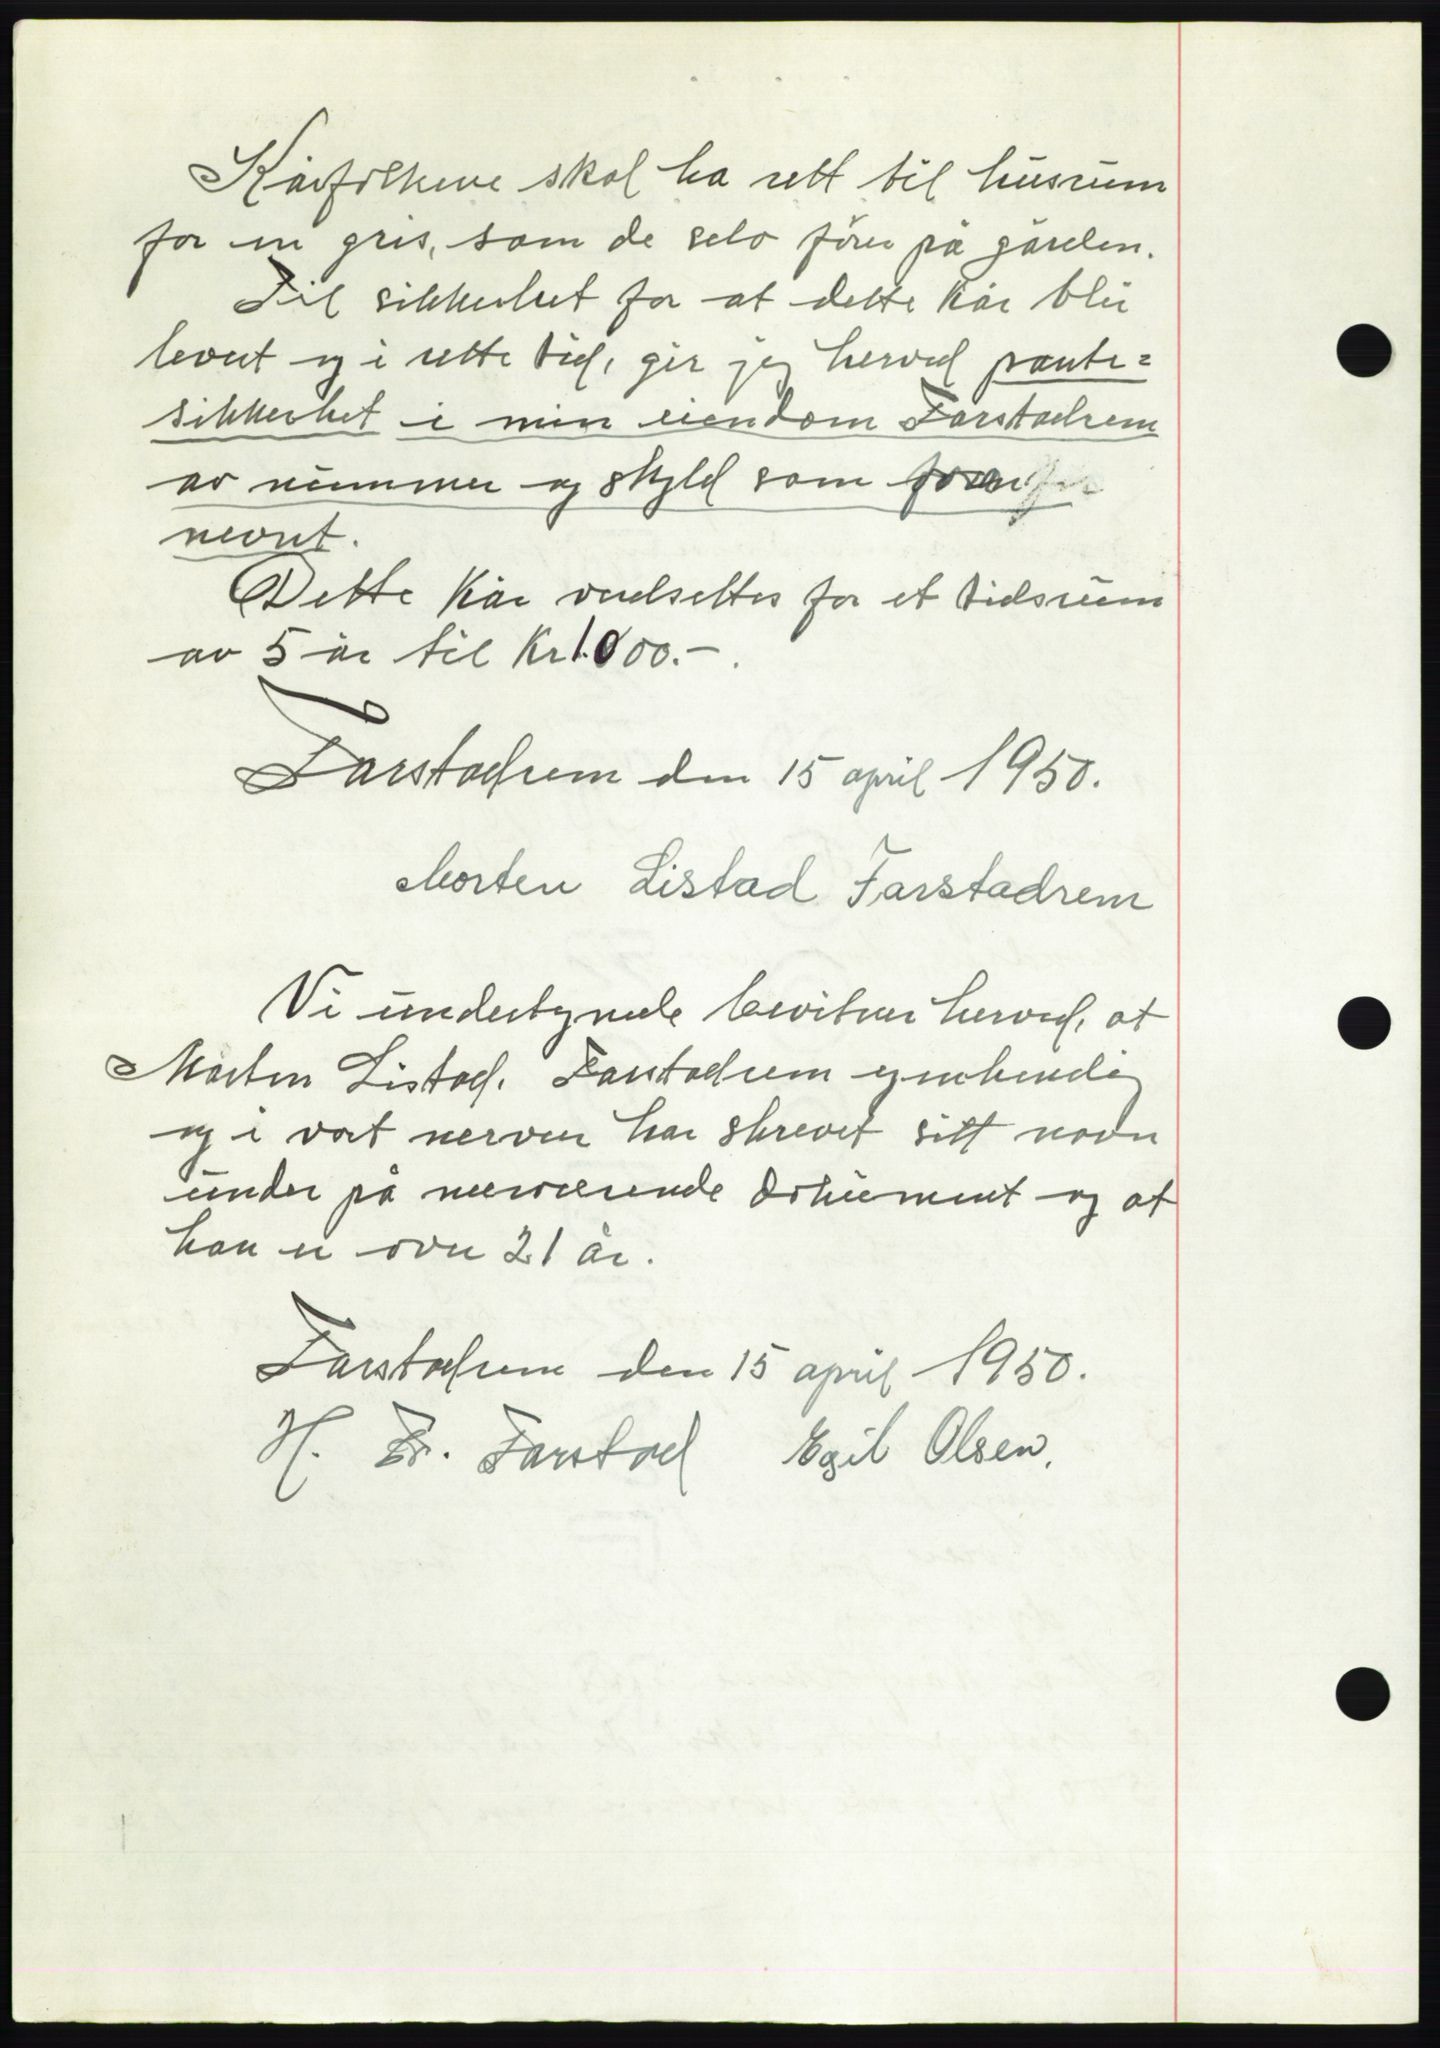 Kårfolkene skal ha rett til husrum
for en gris, som de selv fôrer på gården.
Til sikkerhet for at dette kår blir
levert og i rette tid, gir jeg herved pante=
sikkerhet i min eiendom Farstadrem
av nummer og skyld som foran
nevnt.
Dette kår verdsettes for et tidsrum
av 5 år til kr 1.000.-.
Farstadrem den 15 april 1950.
Morten Listad Farstadrem
Vi undertegnede bevitner herved, at
Morten Listad, Farstadrem egenhendig
og i vort nerver har skrevet sitt navn
under på nærværende dokument og at
han er over 21 år.
Farstadrem den 15 april 1950.
H. Fr. Farstad Egil Olsen.